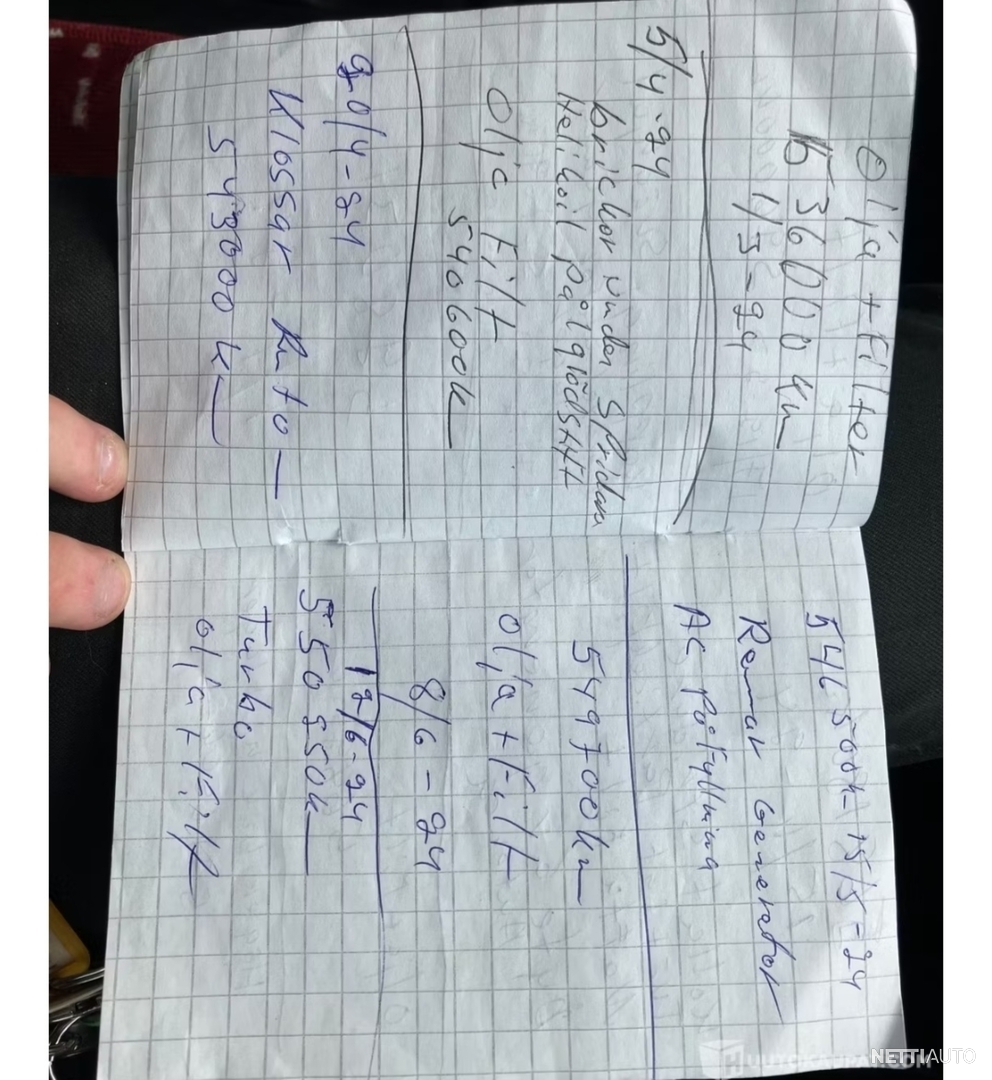 Olja + Filter
536000 km
1/3-24
5/4-24
brickor under Spridare
Helikoil på 1 glödstift
Olje Filt
540600k
20/4-24
Klossar Runto
543000 k
546500k - 15/5-24
Remar Generator
AC Påfyllning
549700km
olja + Filt
8/6-24
12/6-24
550850k
Turbo
olja + Filt
NETTIAUTO
HUUTOKAUPAT.COM